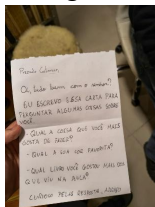 Oi, tudo bem com o senhor?
EU ESCREVO ESSA CARTA PARA
PERGUNTAR ALGUMAS COISAS SOBRE
VOCÊ.
- QUAL A COISA QUE VOCÊ MAIS
GOSTA DE
- QUAL A SUA COR FAVORITA?
- QUAL LIVRO VOCÊ GOSTOU MAIS DOS
QUE VIU NA AULA?
PELA RESPOSTA,